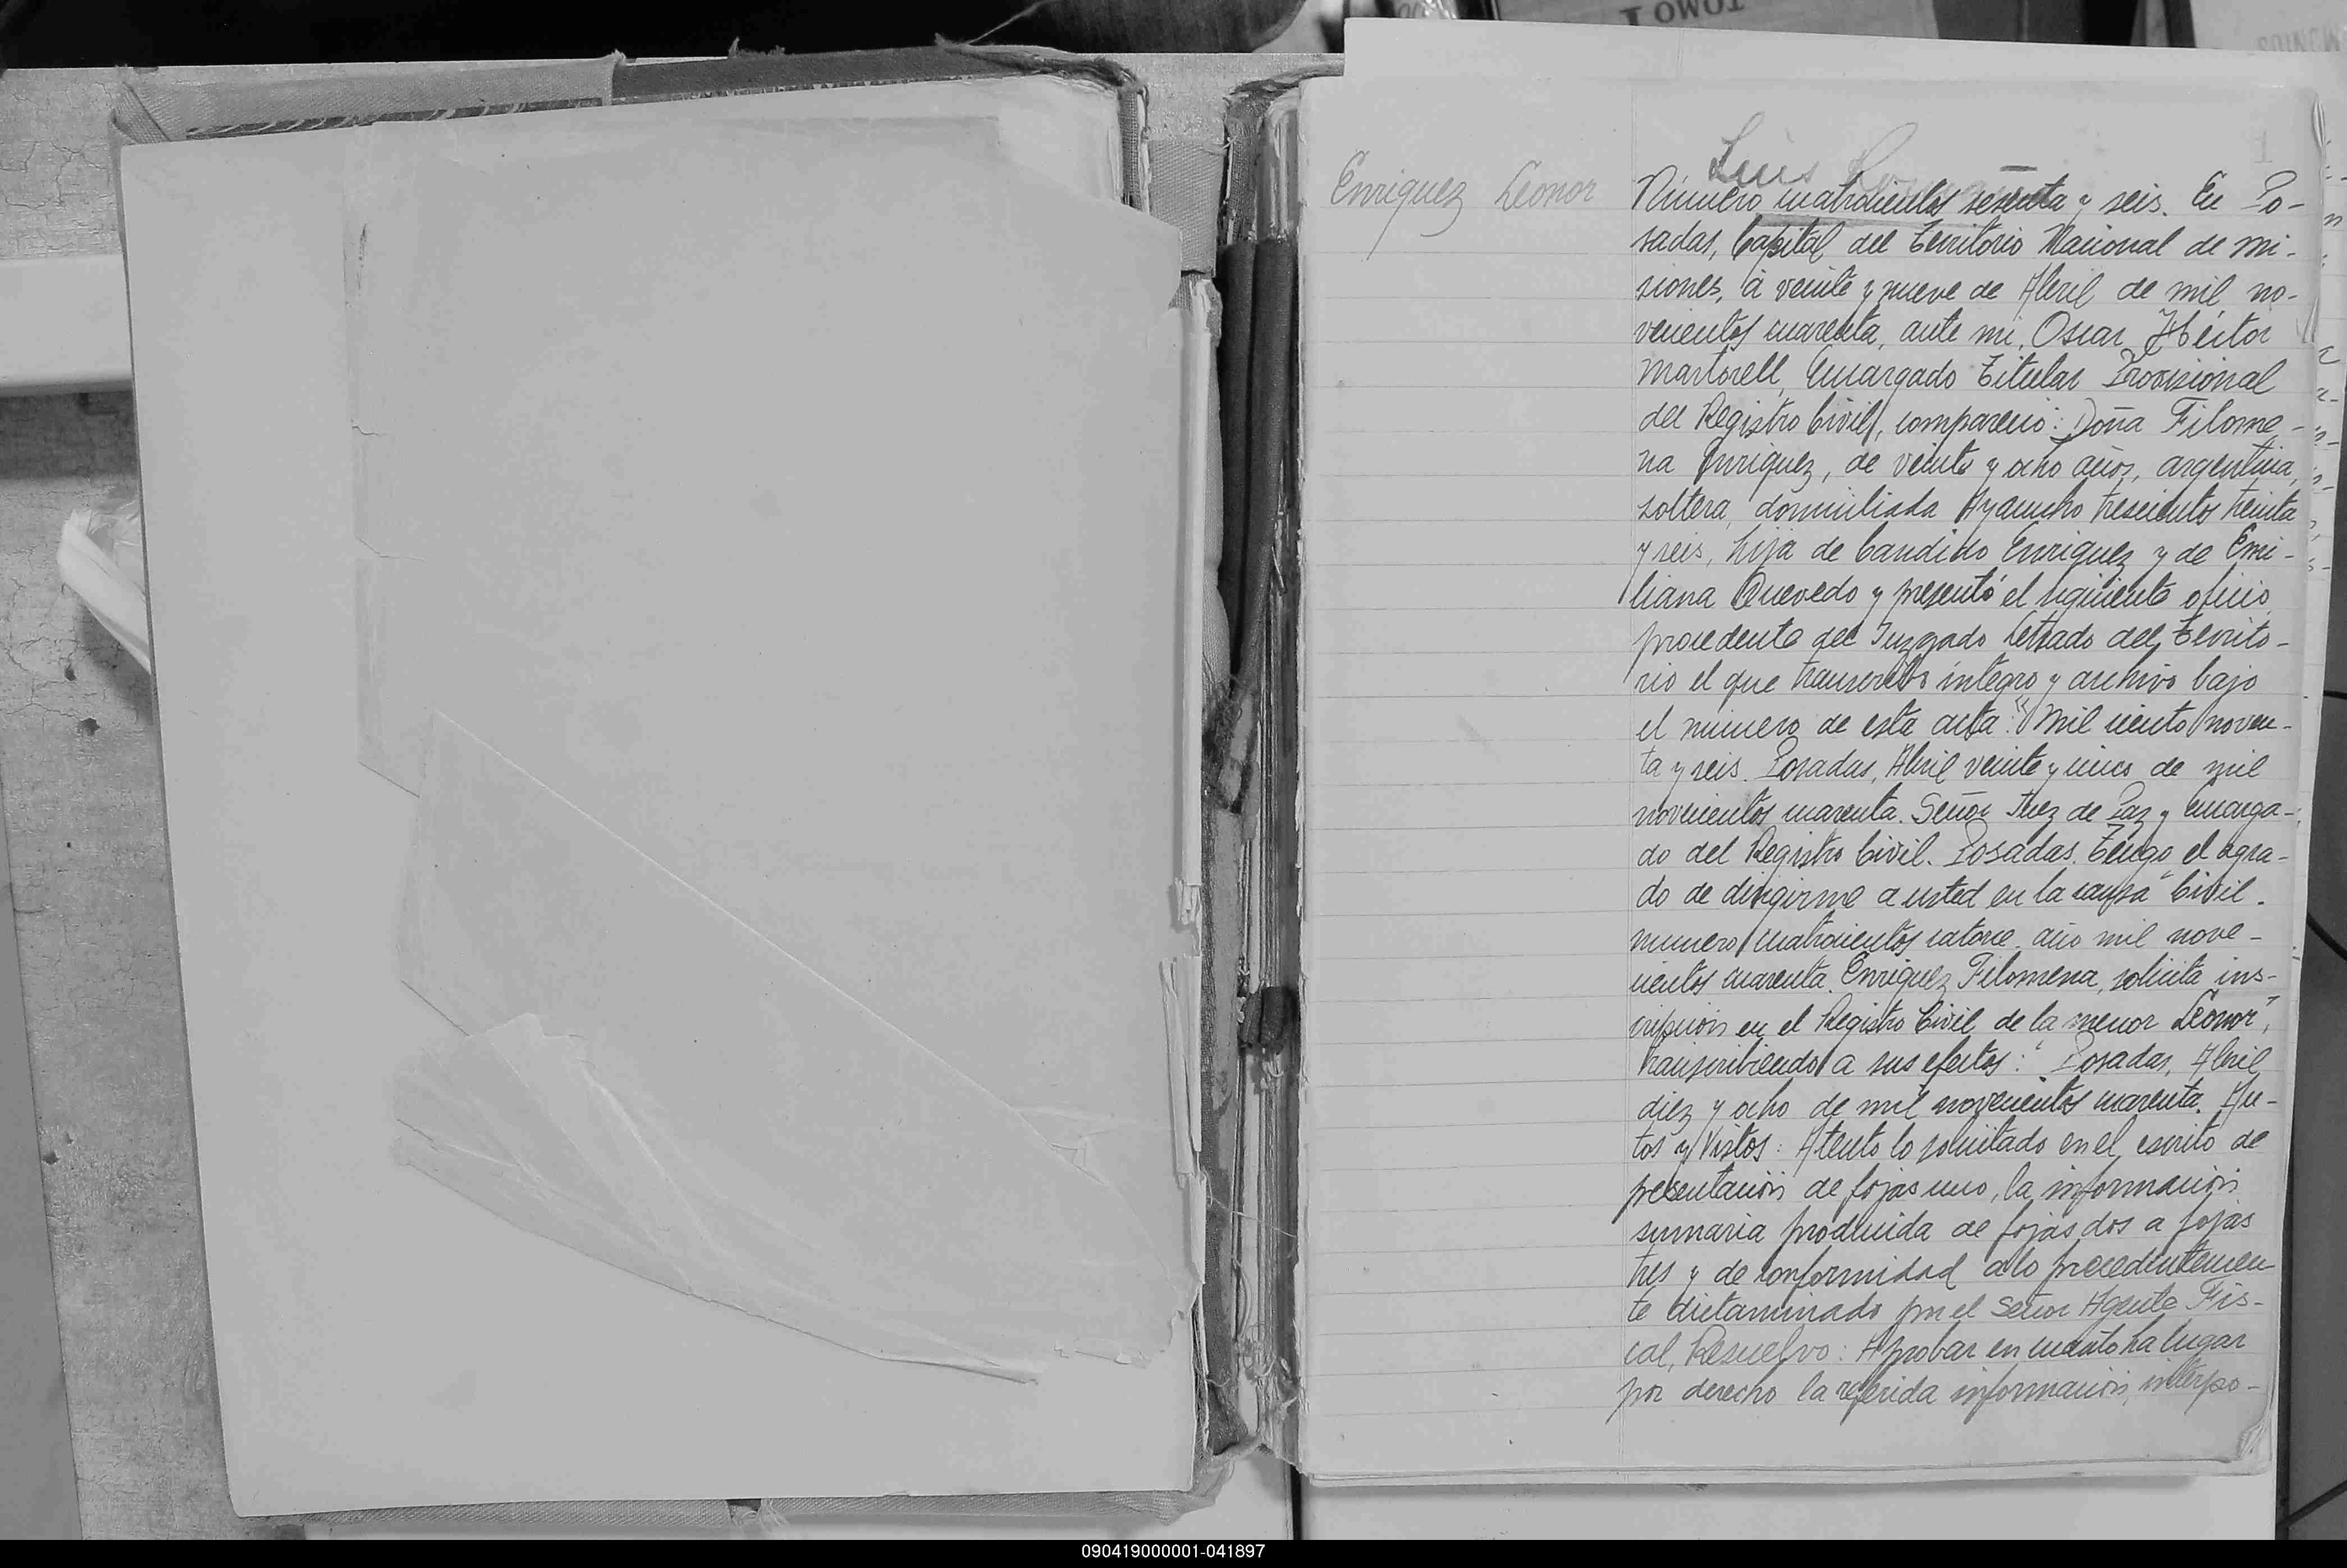 TOMO I
Luis
1
Enriquez Leonor
Número cuatrocientos sesenta y seis. En Po-
sadas, Capital del Territorio Nacional de Mi-
siones, á veinte y nueve de Abril de mil no-
vecientos cuarenta, ante mi, Oscar Héctor
Martorell, Encargado Titular Provisional
del Registro Civil, compareció: Doña Filome-
na Enriquez, de veinte y ocho años, argentina,
soltera, domiciliada Ayacucho trescientos treinta
y seis, hija de Candido Enriquez y de Emi-
liana Quevedo y presentó el siguiente oficio
procedente del Juzgado Letrado del Territo-
rio el que transcribo integro y archivo bajo
el número de esta acta: "Mil ciento noven-
ta y seis. Posadas, Abril veinte y cinco de mil
novecientos cuarenta. Señor Juez de Paz y Encarga-
do del Registro Civil. Posadas. Tengo el agra-
do de dirigirme a usted en la causa "Civil.
numero cuatrocientos catorce. año mil nove-
cientos cuarenta. Enriquez Filomena, solicita ins-
cripción en el Registro Civil de la menor Leonor",
transcribiendo a sus efectos: "Posadas, Abril
diez y ocho de mil novecientos cuarenta. Au-
tos y Vistos: Atento lo solicitado en el escrito de
presentación de fojas uno, la información
sumaria producida de fojas dos a fojas
tres y de conformidad a lo precedentemen-
te dictaminado por el Señor Agente Fis-
cal, Resuelvo: Aprobar en cuanto ha lugar
por derecho la referida información, interpo-
090419000001-041897